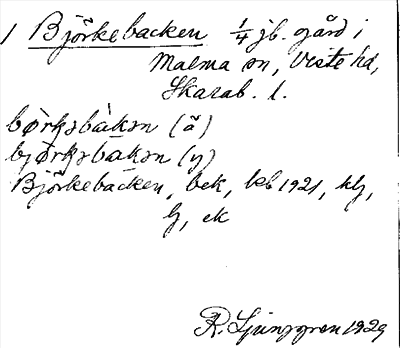 1 Björkebacken 1/4 jb. gård i
Malma sn, Viste hd,
Skarab. l.
børksbàksn (ä)
bjørksbàksn (y)
Björkebacken, bek, kb 1921, hlj,
lj, ek
R. Ljunggren 1929